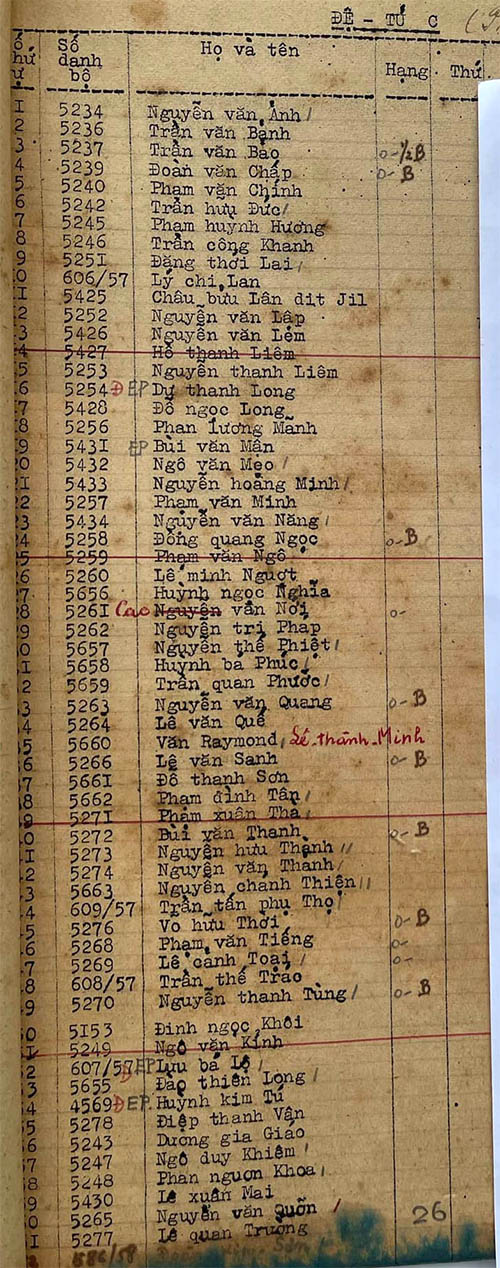 ĐỆ - TỨ C
Số danh bộ Họ và tên Hạng Thứ
1 5234 Nguyễn văn Ảnh /
2 5236 Trần văn Bảnh
3 5237 Trần văn Bảo o-½B
4 5239 Đoàn văn Chấp o-B
5 5240 Phạm văn Chính
6 5242 Trần hữu Đức /
7 5245 Phạm huỳnh Hương
8 5246 Trần công Khanh
9 5251 Đặng thới Lai /
0 606/57 Lý chi Lan
1 5425 Châu bửu Lân dit Jil
2 5252 Nguyễn văn Lập
3 5426 Nguyễn văn Lém
4 5427 Hồ thanh Liêm
5 5253 Nguyễn thanh Liêm
6 5254 Đ EP Dự thanh Long
7 5428 Đỗ ngọc Long
8 5256 Phan lương Mãnh
9 5431 EP Bùi văn Mận
20 5432 Ngô văn Mẹo /
21 5433 Nguyễn hoàng Minh /
22 5257 Phạm văn Minh
23 5434 Nguyễn văn Năng /
24 5258 Đồng quang Ngọc o-B
25 5259 Phạm văn Ngô
26 5260 Lê minh Nguợt
27 5656 Huỳnh ngọc Nghĩa
28 5261 Cao Nguyễn văn Nơi o-
29 5262 Nguyễn tri Pháp
30 5657 Nguyễn thế Phiệt /
1 5658 Huỳnh bá Phúc /
2 5659 Trần quan Phước /
3 5263 Nguyễn văn Quang o-B
4 5264 Lê văn Quế
5 5660 Văn Raymond, Lê-thành-Minh
6 5266 Lê văn Sanh o-B
7 5661 Đỗ thanh Sơn
8 5662 Phạm đình Tân /
9 5271 Phạm xuân Tha
0 5272 Bùi văn Thanh o-B
1 5273 Nguyễn hưu Thạnh //
2 5274 Nguyễn văn Thanh /
3 5663 Nguyễn chanh Thiên //
4 609/57 Trần tấn phụ Thọ
5 5276 Vo hưu Thời o-B
6 5268 Phạm văn Tiếng o-
7 5269 Lê cảnh Toại / o-
8 608/57 Trần thế Trao
9 5270 Nguyễn thanh Tùng / o-B
0 5153 Đinh ngọc Khôi
1 5249 Ngô văn Kính
2 607/57 EP Lưu bá Lệ /
3 5655 Đ Đào thiên Long /
4 4569 Đ EP. Huỳnh kim Tú
5 5278 Điệp thanh Vân
6 5243 Dương gia Giáo
7 5247 Ngô duy Khiêm /
8 5248 Phan nguơn Khoa /
9 5430 Lê xuân Mai
0 5265 Nguyễn văn Quỡn / 26
1 5277 Lê quan Trường
586/58